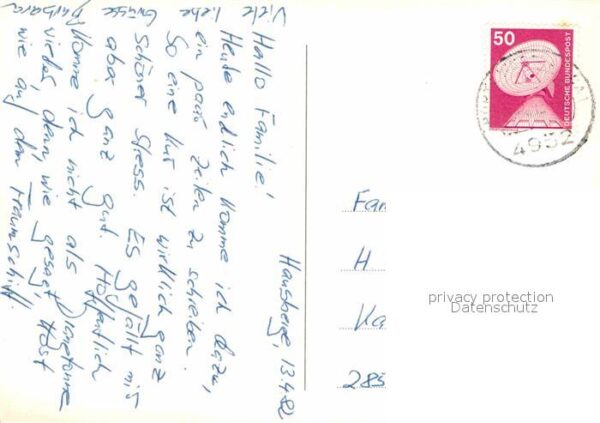 Hausberge, 13.4.82
Hallo Familie!
Heute endlich komme ich dazu,
ein paar Zeilen zu schreiben.
So eine Kur ist wirklich ganz
schöner Stress. Es gefällt mir
aber ganz gut. Hoffentlich
komme ich nicht als Programmtonne
wieder, denn, wie gesagt, Kost
wie auf dem Traumschiff.
Viele liebe Grüsse
Barbara
50
DEUTSCHE BUNDESPOST
4952
Fam
H
Ka
285
privacy protection
Datenschutz